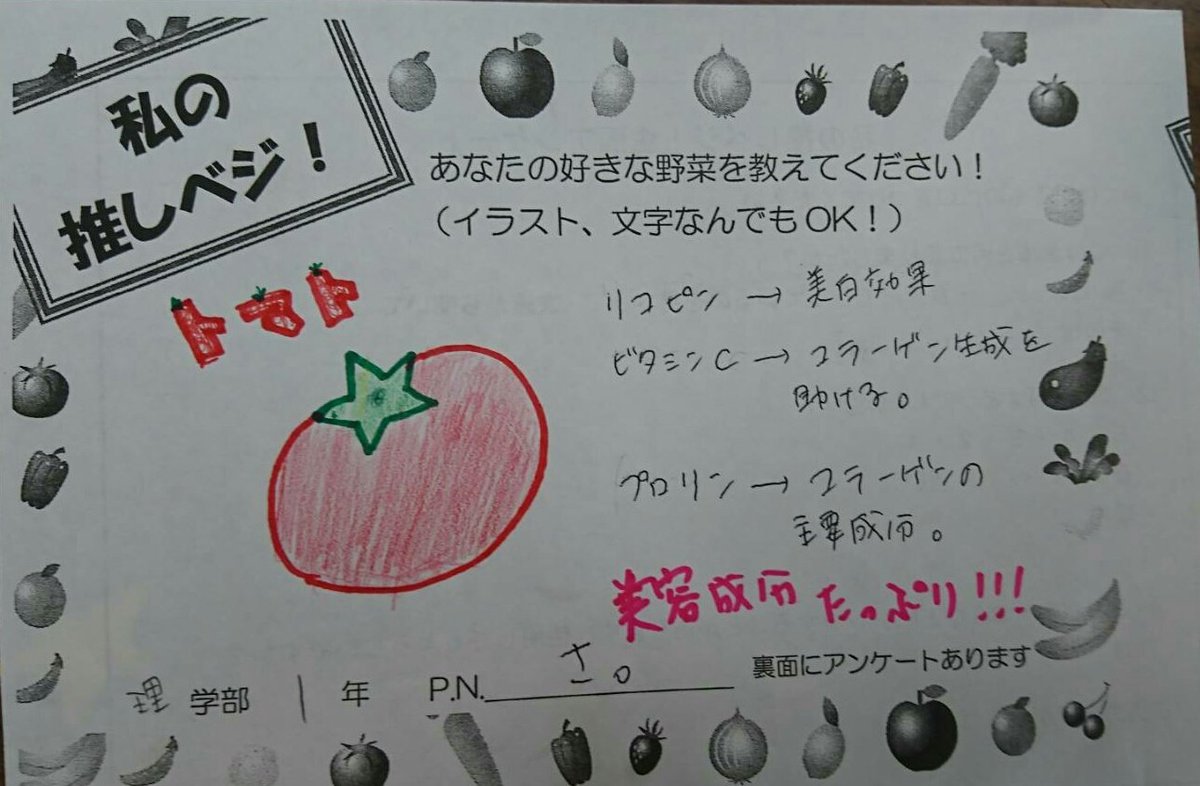 私の
推しベジ！
あなたの好きな野菜を教えてください！
（イラスト、文字なんでもOK！）
トマト
リコピン → 美白効果
ビタミンC → コラーゲン生成を
助ける。
プロリン → コラーゲンの
主要成分。
美容成分たっぷり!!!
理 学部 1 年 P.N. さ。
裏面にアンケートあります